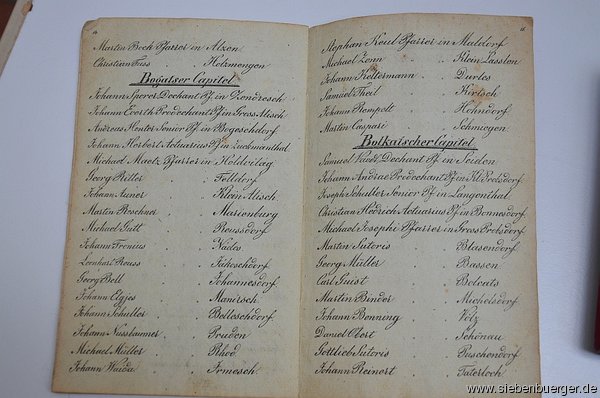 Martin Bock Pfarrer in Alzen
Christian Fuss . . Holzmengen
Bogatser Capitel.
Johann Sperer Dechant Pf. in Zendresch
Johann Loosth Prodechant Pf. in Gross Alisch
Andreas Henter Senior Pf. in Bogeschdorf
Johann Herbert Actuarius Pf. in Zuckmanthal
Michael Maetz Pfarrer in Holdvilag
Georg Ritter . . Felldorf
Johann Auner . . Klein Alisch
Martin Roschner . . Marienburg
Michael Gutt . . Reussdorf
Johann Fronius . . Nades
Leonhart Reuss . . Jakeschdorf
Georg Bell . . Johannesdorf
Johann Elgjes . . Maniersch
Johann Schuller . . Belleschdorf
Johann Nussbaumer . . Pruden
Michael Müller . . Rhod
Johann Waida . . Irmesch
Stephan Keul Pfarrer in Maldorf
Michael Zenn . . Klein Lasslen
Johann Kellermann . . Durles
Samuel Theil . . Kirtsch
Johann Hempelt . . Hohndorf
Martin Caspari . . Schmiegen
Bolkatscher Capitel.
Samuel Dechant Pf. in Seiden
Johann Andrae Prodechant Pf. in Kl.
Joseph Schulter Senior Pf. in Langenthal
Christian Hedrich Actuarius Pf. in Bonnesdorf
Michael Josephi Pfarrer in Gross Probsdorf
Martin Sutoris . . Blasendorf
Georg Müller . . Bassen
Carl Guist . . Bolcats
Martin Binder . . Michelsdorf
Johann Bonning . . Völz
Daniel Obert . . Schönau
Gottlieb Sutoris . . Puschendorf
Johann Reinert . . Taterloch
www.siebenbuerger.de